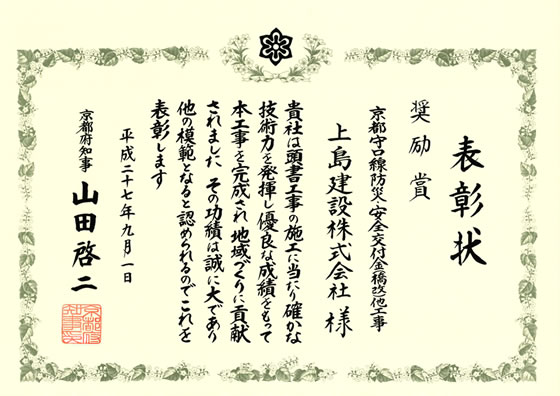 表彰状
奨励賞
京都守口線防災・安全交付金橋改他工事
上島建設株式会社 様
貴社は頭書工事の施工に当たり確かな
技術力を発揮し優良な成績をもって
本工事を完成され 地域づくりに貢献
されました その功績は誠に大であり
他の模範となると認められるのでこれを
表彰します
平成二十七年九月一日
京都府知事 山田啓二
京都府知事之印